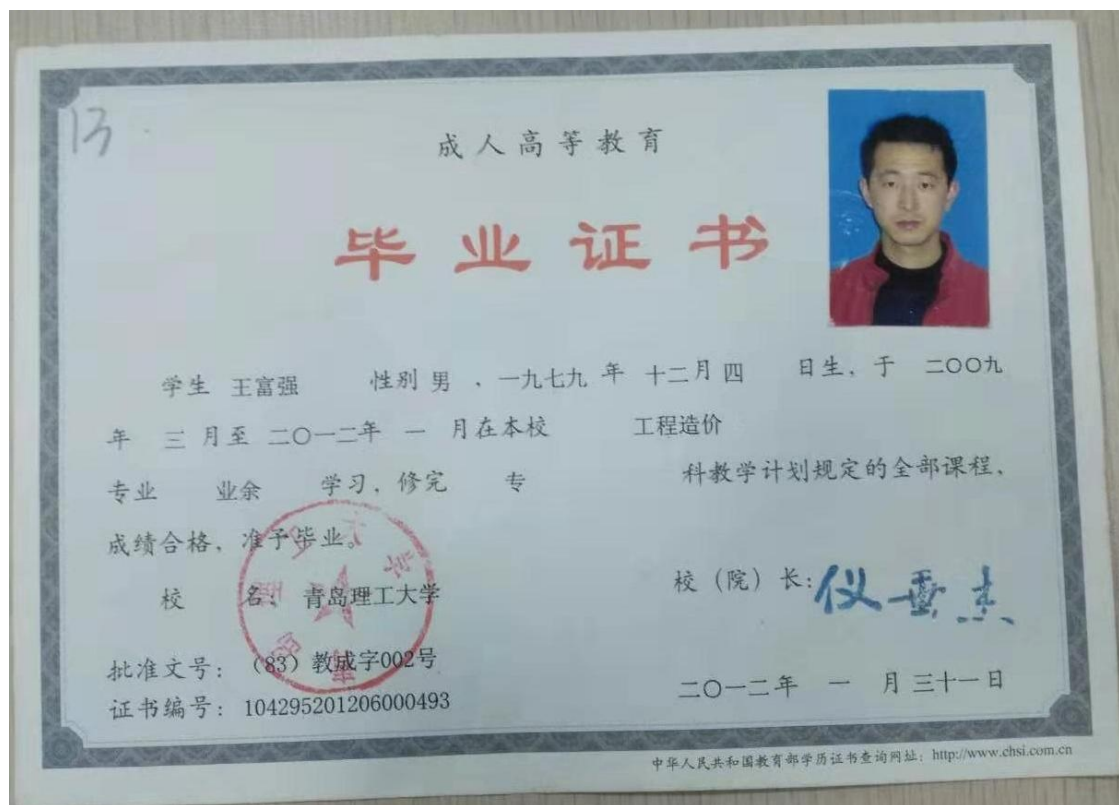 13
成人高等教育
毕业证书
学生 王富强 性别 男 、一九七九 年 十二月 四 日生，于 二〇〇九
年 三 月至 二〇一二年 一 月在本校 工程造价
专业 业余 学习，修完 专 科教学计划规定的全部课程，
成绩合格，准予毕业。
校 名： 青岛理工大学
校（院）长：仪垂杰
批准文号：（83）教成字002号
证书编号：104295201206000493
二〇一二年 一 月 三十一日
中华人民共和国教育部学历证书查询网址：http://www.chsi.com.cn